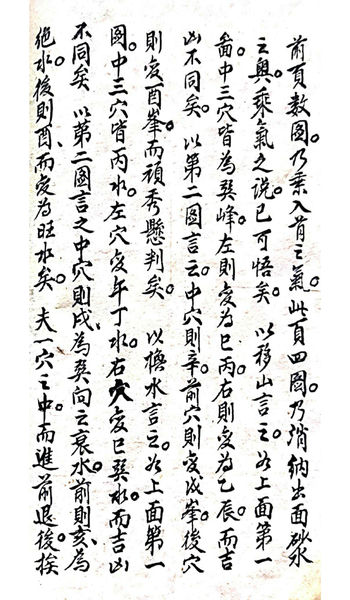 前頁数圖。乃乘入首之氣。此頁四圖。乃消納出面砂水
之奧。乘氣之说。已可悟矣。以移山言之。如上面第一
圖。中三穴皆為癸峰。左則変為巳丙。右則変為乙辰。而吉
凶不同矣。以第二圖言之。中穴則辛。前穴則変戍峯。後穴
則変酉峯。而頑秀懸判矣。以換水言之。如上面第一
圖。中三穴皆丙水。左穴変午丁水。右穴変巳巽水。而吉凶
不同矣。以第二圖言之。中穴則戍、為癸向之衰水。前則亥、為
絶水。後則酉、而変為旺水矣。夫一穴之中。而進前退後。挨